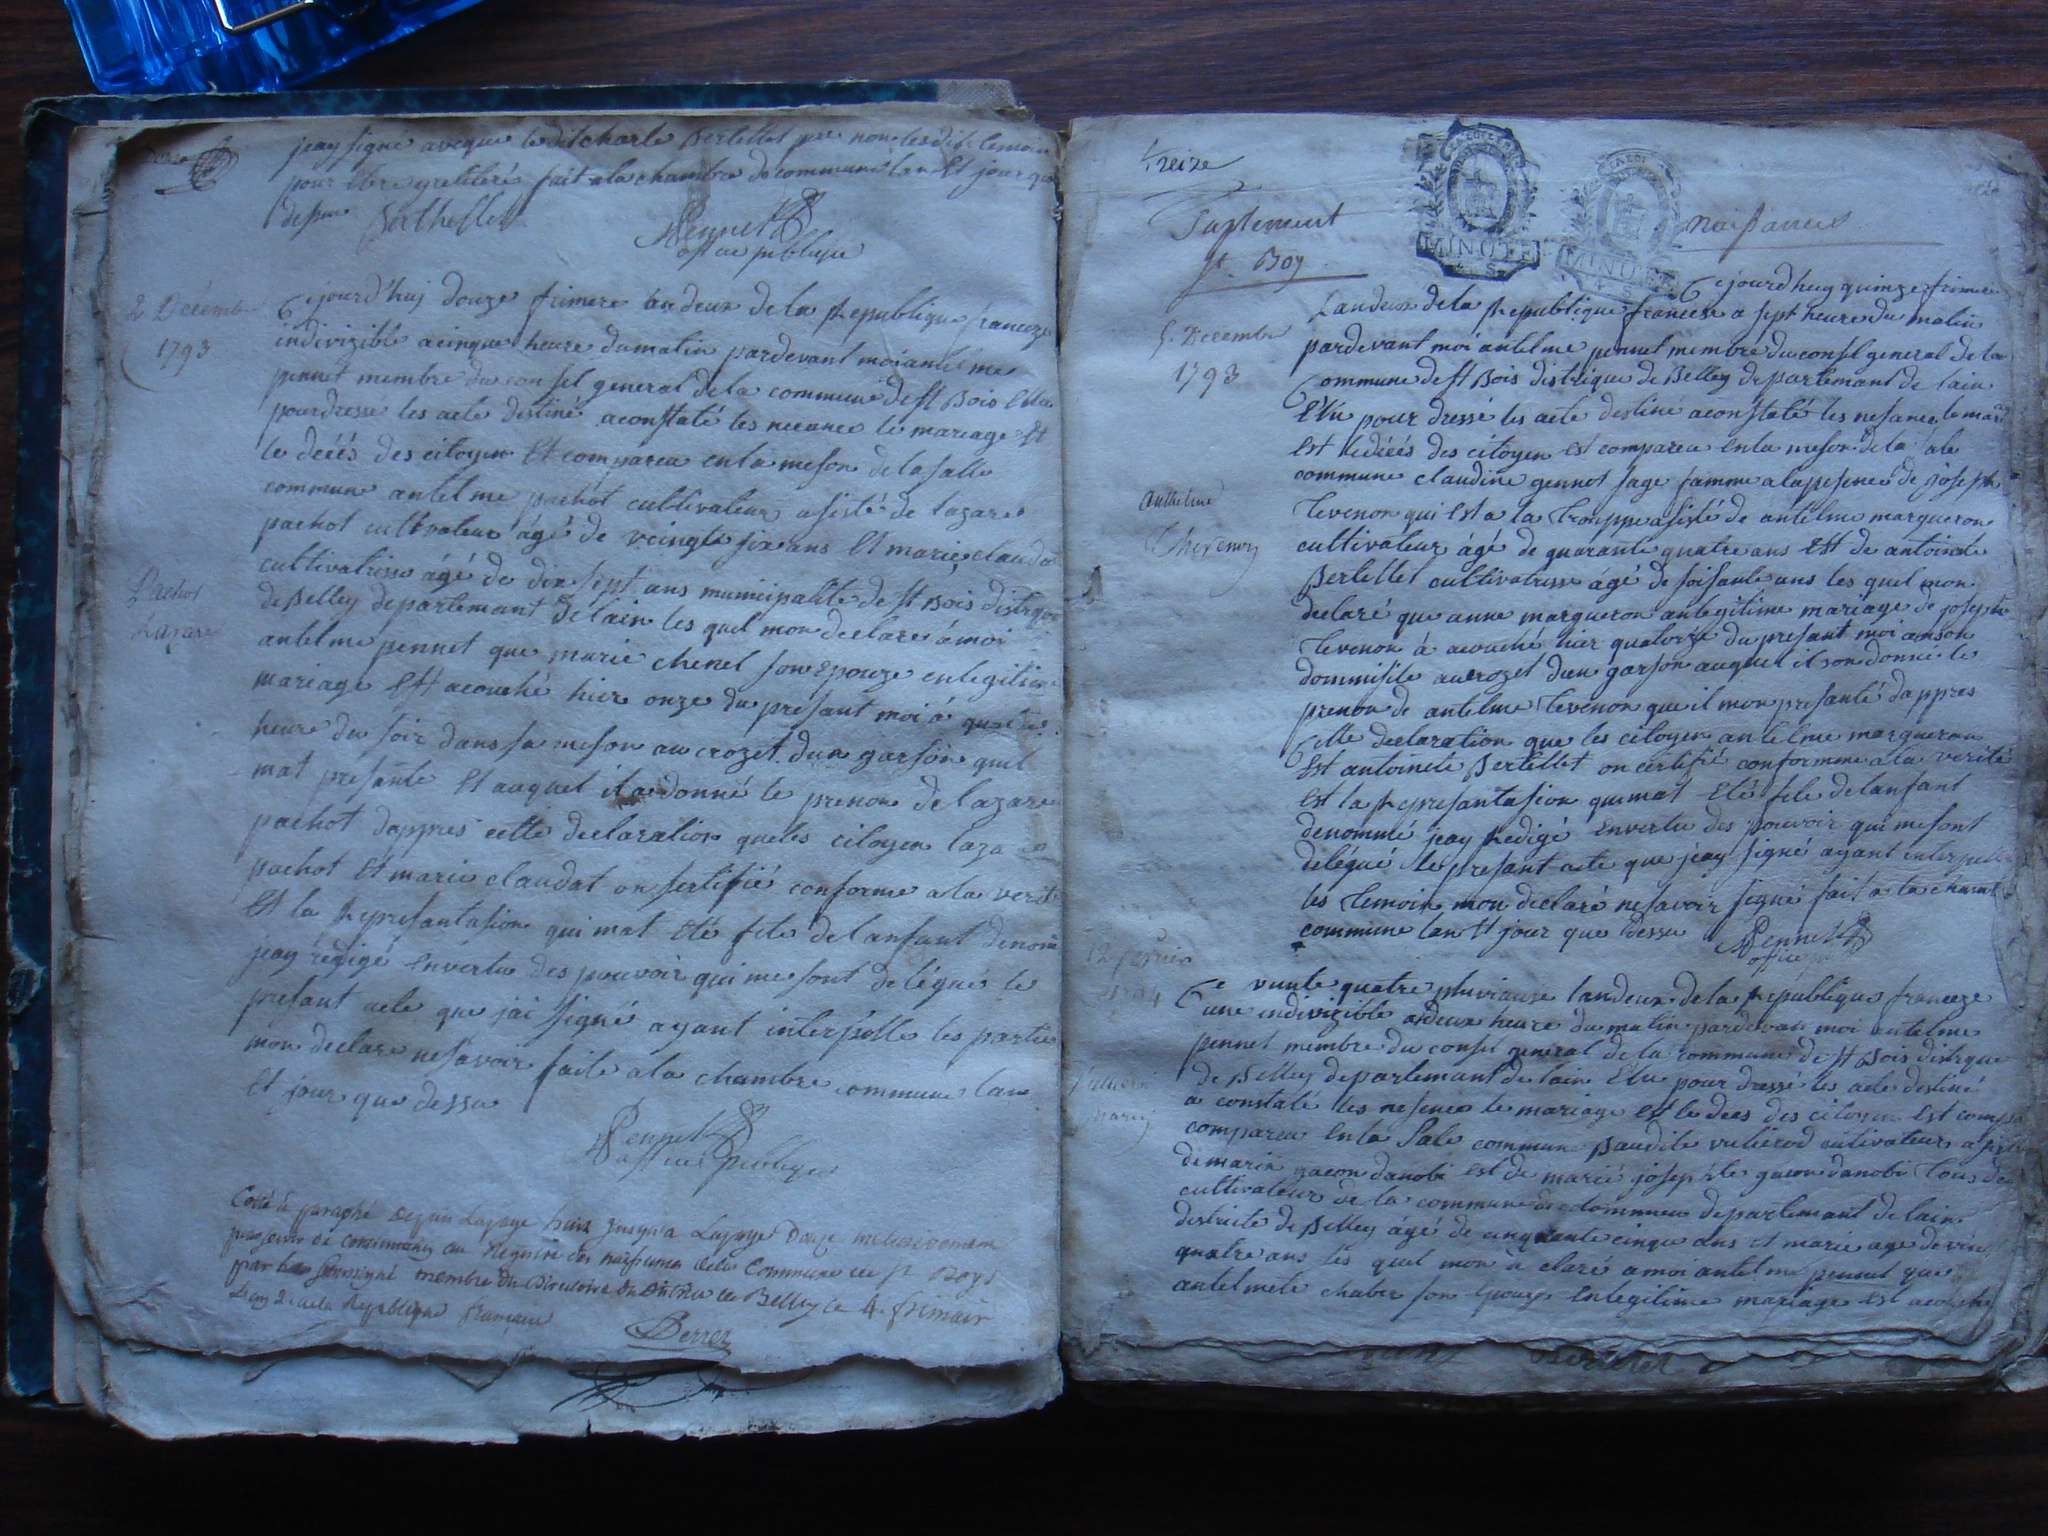 jeay signé aveque le dit charle Bertellet pre non les dit temoin
pour être fait a la chambre de commune lan Et jour que
desus Berthellet Pennet
officie publique
2 Décembre
1793
Cejourd'huj douze frimere lan deux de la Republique franceze
indivizible a cinque heure du matin pardevant moi antelme
pennet membre du consel general de la commune de st Bois Elu
pour dresse les acte destiné a constaté les necance le mariage Et
le décés des citoyen Et comparea en la meson de la salle
commune antelme pachot cultivateur asisté de lazare
pachot cultivateur âgé de veingte six ans Et marie claudat
cultivatrisse âgé de dix sept ans municipalité de st Bois distrique
de Belley departemant de lain les quel mon declare a moi
Pachot
Lazare
antelme pennet que marie chenel son Epouze en legitime
mariage Est acouché hier onze du presant moi à quatre
heure du soir dans sa meson au crozet dun garson quil
mat presante Et auquel il a donné le prenon de lazare
pachot dappres cette declaration que les citoyen lazare
pachot Et marie claudat on sertifié conforme a la verité
Et la Represantasion qui mat Eté fete de lanfant denomé
jeay rédigé en vertu des pouvoir qui me sont delégué le
presant acte que jai signé ayant interpelle les partie
mon declare ne savoir faite a la chambre commune lan
Et jour que dessu
Pennet
officie publique
Cotté & paraphé depuis la page huit jusqu'a la page Douze
par Les soussigné membre du Directoire du District de Belley ce 4 frimair
L'an 2 de la Republique française
Perret
treize
Suplement naissances
st. Boy
Cejourd'huy quinze frimere
5. Decembre
1793
Lan deux de la Republique franceze a sept heure du matin
pardevant moi antelme pennet membre du consel general de la
Commune de st Bois distrique de Belley departemant de lain
Elu pour dressé les acte destine a constaté les nesance le mariage
Est le décés des citoyen est comparea en la meson de la sale
commune claudine gennot sage famme a la presence de joseph
anthelme
Thevenon
Tevenon qui est a la Trouppe asisté de antelme margueron
cultivateur âgé de quarante quatre ans Est de antoinete
Bertellet cultivatrisse âgé de soisante ans les quel mon
declaré que anne margueron en legitime mariage de joseph
Tevenon à acouché hier quatorze du presant moi an son
dommisile au crozet dun garson auquel il son donné le
prenon de antelme Tevenon que il mon presanté dappres
Cette declaration que les citoyen antelme margueron
Est antoinete Bertellet on certifié conformme a la verité
Est la Represantasion qui mat Eté fete de lanfant
denommé jeay Redigé en vertu des pouvoir qui me sont
delégué le presant acte que jeay signé ayant interpelle
les Temoin mon declaré ne savoir signé fait a la chambre
commune lan Et jour que Dessu Pennet
officie
12 fevrier
1794
Ce vinte quatre pluviause lan deux de la Republique franceze
une indivizible a deux heure du matin pardevan moi antelme
pennet membre du consel general de la commune de st Bois distrique
de Belley departemant de lain Elu pour dressé les acte destiné
a constaté les nesence le mariage Est le dees des citoyen Est compa
comparea en la Sale commune Baudite cultivateur asisté
de marin gacon danobi Est de marie josephte gacon danobi Tous deu
cultivateur de la commune de departemant de lain
districte de Belley âgé de cinquante cinque ans et marie age de vin
quatre ans les quel mon declaré a moi antelme pennet que
antelmete chabier son Epouze en legitime mariage Est acouché